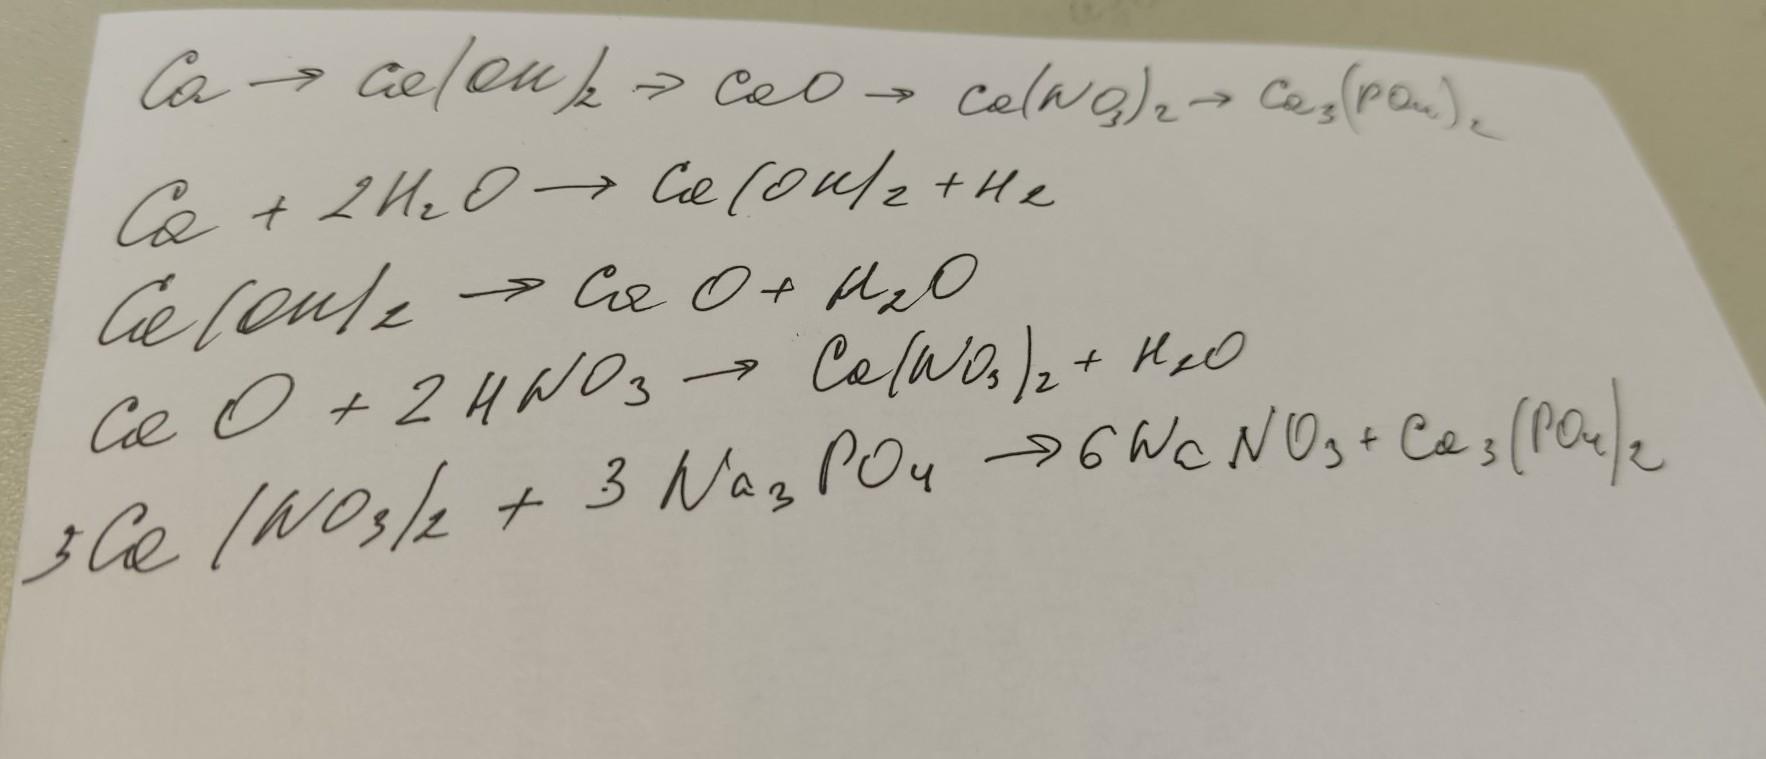 Ca → Ca(OH)2 → CaO → Ca(NO3)2 → Ca3(PO4)2
Ca + 2H2O → Ca(OH)2 + H2
Ca(OH)2 → CaO + H2O
CaO + 2HNO3 → Ca(NO3)2 + H2O
3Ca(NO3)2 + 3Na3PO4 → 6NaNO3 + Ca3(PO4)2